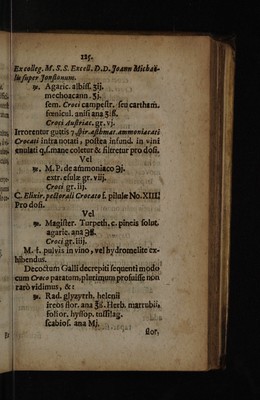 125.
Ex colleg. M. S. S. Excell. D. D. Joann Michaë-
lis super Jonstonum.
℞. Agaric. albiss. ʒij.
mechoacann. ʒj.
sem. Croci campestr. seu cartham.
fœnicul. anisi ana ʒß.
Croci Austriac. gr. vj.
Irrorentur guttis 7. spir. asthmat. ammoniacati
Crocati infra notati, postea infund. in vini
emulati q. s. mane coletur & filtretur pro dosi.
Vel
℞. M. P. de ammoniaco ℈j.
extr. esulæ gr. viij.
Croci gr. iij.
C. Elixir. pectorali Crocato f. pilulæ No. XIII.
Pro dosi.
Vel
℞. Magister. Turpeth. c. pineis solut.
agaric. ana ℈ß.
Croci gr. iiij.
M. f. pulvis in vino, vel hydromelite ex-
hibendus.
Decoctum Galli decrepiti sequenti modo
cum Croco paratum, plurimum profuisse non
rarò vidimus, &:
℞. Rad. glyzyrrh. helenii
ireos flor. ana ℥ß. Herb. marrubii,
folior. hyssop. tussilag.
scabios. ana Mj.
flor.